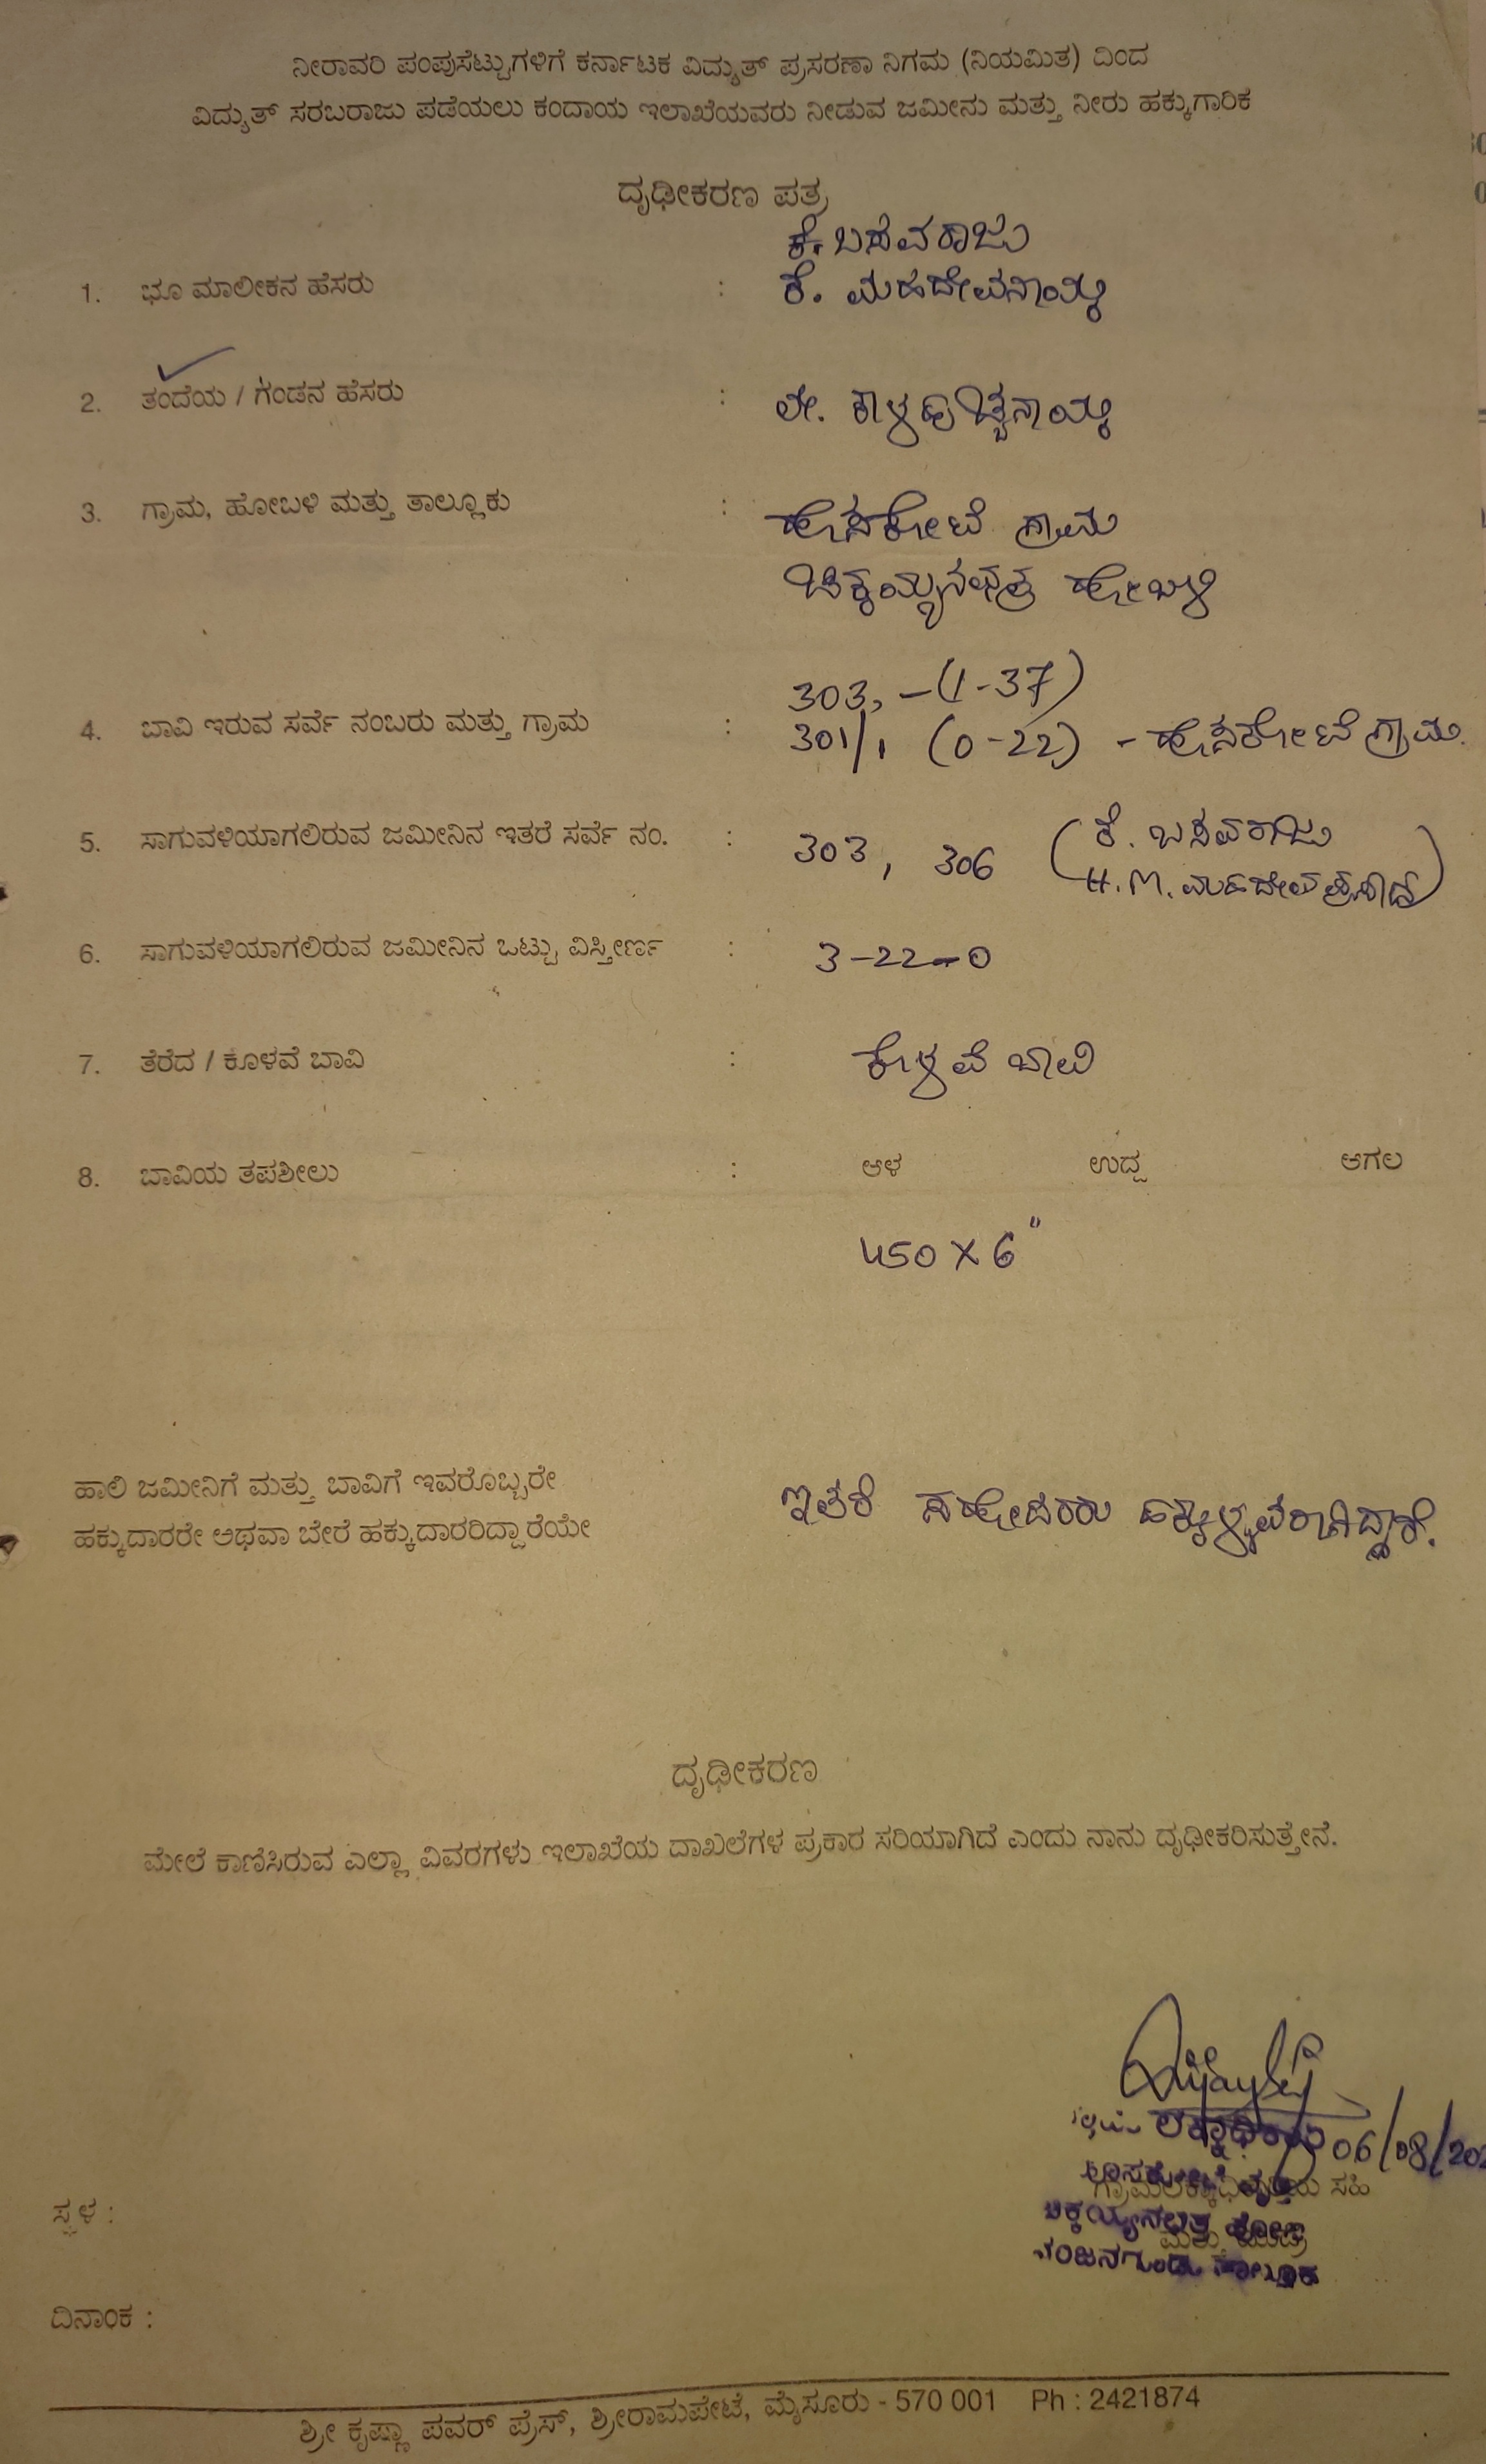 ನೀರಾವರಿ ಪಂಪುಸೆಟ್ಟುಗಳಿಗೆ ಕರ್ನಾಟಕ ವಿದ್ಯುತ್ ಪ್ರಸರಣಾ ನಿಗಮ (ನಿಯಮಿತ) ದಿಂದ
ವಿದ್ಯುತ್ ಸರಬರಾಜು ಪಡೆಯಲು ಕಂದಾಯ ಇಲಾಖೆಯವರು ನೀಡುವ ಜಮೀನು ಮತ್ತು ನೀರು ಹಕ್ಕುಗಾರಿಕ
ದೃಢೀಕರಣ ಪತ್ರ
ಕೆ. ಬಸವರಾಜು
1. ಭೂ ಮಾಲೀಕನ ಹೆಸರು : ಕೆ. ಮಹದೇವನಾಯ್ಕ
2. ತಂದೆಯ / ಗಂಡನ ಹೆಸರು : ಲೇ. ಕಾಳಹುಚ್ಚನಾಯ್ಕ
3. ಗ್ರಾಮ, ಹೋಬಳಿ ಮತ್ತು ತಾಲ್ಲೂಕು : ಹೊಸಕೋಟೆ ಗ್ರಾಮ
ಚಿಕ್ಕಯ್ಯನಛತ್ರ ಹೋಬಳಿ
303, -(1-37)
4. ಬಾವಿ ಇರುವ ಸರ್ವೆ ನಂಬರು ಮತ್ತು ಗ್ರಾಮ : 301/1 (0-22) - ಹೊಸಕೋಟೆ ಗ್ರಾಮ.
5. ಸಾಗುವಳಿಯಾಗಲಿರುವ ಜಮೀನಿನ ಇತರೆ ಸರ್ವೆ ನಂ. : 303, 306 (ಕೆ. ಬಸವರಾಜು
H.M. ಮಹದೇವಪ್ರಸಾದ್)
6. ಸಾಗುವಳಿಯಾಗಲಿರುವ ಜಮೀನಿನ ಒಟ್ಟು ವಿಸ್ತೀರ್ಣ : 3-22-0
7. ತೆರೆದ / ಕೂಳವೆ ಬಾವಿ : ಕೊಳವೆ ಬಾವಿ
8. ಬಾವಿಯ ತಪಶೀಲು : ಆಳ ಉದ್ದ ಅಗಲ
450 X 6"
ಹಾಲಿ ಜಮೀನಿಗೆ ಮತ್ತು ಬಾವಿಗೆ ಇವರೊಬ್ಬರೇ
ಹಕ್ಕುದಾರರೇ ಅಥವಾ ಬೇರೆ ಹಕ್ಕುದಾರರಿದ್ದಾರೆಯೇ
ಇತರೆ ಸಹೋದರರು ಹಕ್ಕುಳ್ಳವರಾಗಿದ್ದಾರೆ.
ದೃಢೀಕರಣ
ಮೇಲೆ ಕಾಣಿಸಿರುವ ಎಲ್ಲಾ ವಿವರಗಳು ಇಲಾಖೆಯ ದಾಖಲೆಗಳ ಪ್ರಕಾರ ಸರಿಯಾಗಿದೆ ಎಂದು ನಾನು ದೃಢೀಕರಿಸುತ್ತೇನೆ.
06/08/202
ಗ್ರಾಮಲೆಕ್ಕಾಧಿಕಾರಿಯ ಸಹಿ
ಸ್ಥಳ :
ಚಿಕ್ಕಯ್ಯನಛತ್ರ ಹೋಬಳಿ
ನಂಜನಗೂಡು ತಾಲ್ಲೂಕು
ದಿನಾಂಕ :
ಶ್ರೀ ಕೃಷ್ಣಾ ಪವರ್ ಪ್ರೆಸ್, ಶ್ರೀರಾಮಪೇಟೆ, ಮೈಸೂರು - 570 001 Ph : 2421874